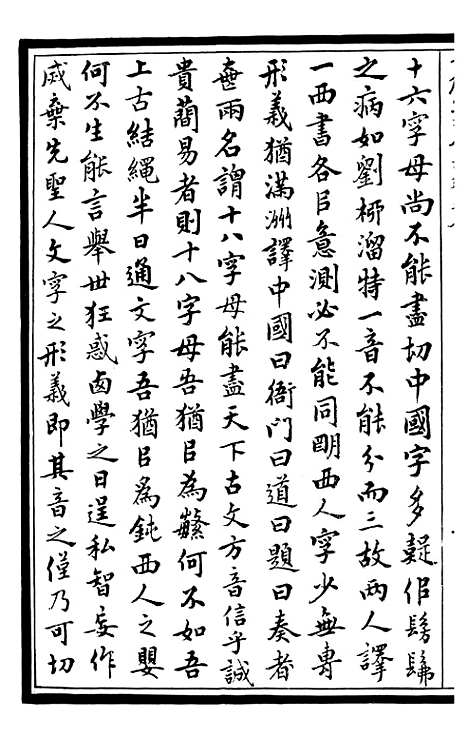 十六字母尚不能盡切中國字多疑似髣髴
之病如劉桺溜特一音不能分而三故兩人譯
一西書各㠯意測必不能同明西人字少無專
形義猶滿洲譯中國曰衙門曰道曰題曰奏者
壹兩名謂十八字母能盡天下古文方音信乎誠
貴簡易者則十八字母吾猶㠯為蘩何不如吾
上古結繩半日通文字吾猶㠯為鈍西人之嬰
何不生能言舉世狂惑卤學之日逞私智妄作
烕棄先聖人文字之形義即其音之僅乃可切